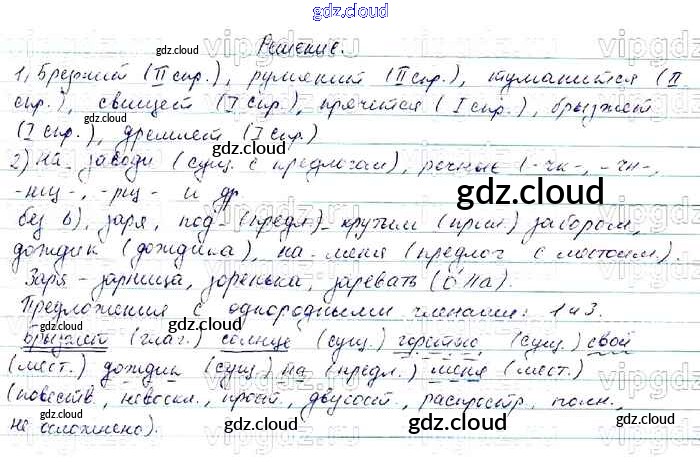 gdz.cloud
Решение.
1) Брезжит (II спр.), румянит (II спр.), туманится (II
спр.), свищет (I спр.), прячется (I спр.), брызжет
(I спр.), дремлет (I спр.)
2) На заводи (сущ. с предлогом), речные (-чк-, -чн-,
-нщ-, -рщ- и др
без ь), заря, под- (предл)- крутым (прил.) забором,
дождик (дождика), на- меня (предлог с местоим.).
Заря - зарница, зоренька, заревать (о́//а).
Предложения с однородными членами: 1 и 3.
Брызжет (глаг.) солнце (сущ.) горстью (сущ.) свой
(мест.) дождик (сущ.) на (предл.) меня (мест.)
(повеств, невоскл., прост, двусост, распростр, полн.,
не осложнено).
gdz.cloud
gdz.cloud
gdz.cloud
gdz.cloud
gdz.cloud
gdz.cloud
gdz.cloud
gdz.cloud
gdz.cloud